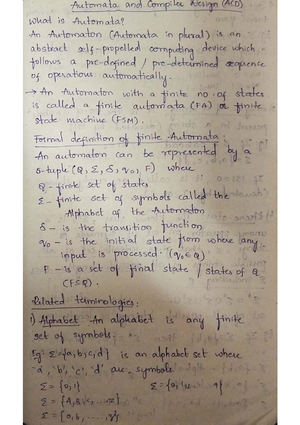 Automata and Compiler Design (ACD)
What is Automata?
An Automaton (Automata in plural) is an
abstract self-propelled computing device which
follows a pre-defined / pre-determined sequence
of operations automatically.
→ An Automaton with a finite no. of states
is called a finite automata (FA) or finite
state machine (FSM).
Formal definition of finite Automata:
An automaton can be represented by a
5-tuple (Q, Σ, δ, q₀, F) where
Q - finite set of states
Σ - finite set of symbols called the
Alphabet of the Automaton
δ - is the transition function
q₀ - is the initial state from where any
input is processed (q₀∈Q)
F - is a set of final state / states of Q
(F⊆Q).
Related terminologies:
1) Alphabet: An alphabet is any finite
set of symbols.
Eg: Σ={a,b,c,d} is an alphabet set where
'a', 'b', 'c', 'd' are symbols.
Σ = {0,1} Σ = {0,1, ... 9}
Σ = {A,B,C, ... z}
Σ = {a,b, ..., z}